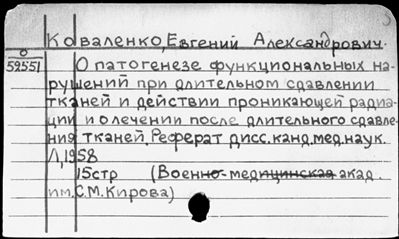 Коваленко, Евгений Александрович.
О
59551
О патогенезе функциональных на-
рушений при длительном сдавлении
тканей и действии проникающей радиа-
ции и о лечении после длительного сдавле-
ния тканей. Реферат дисс. канд. мед. наук.
Л, 1958
15 стр (Военно-медицинская акад.
им. С.М. Кирова)